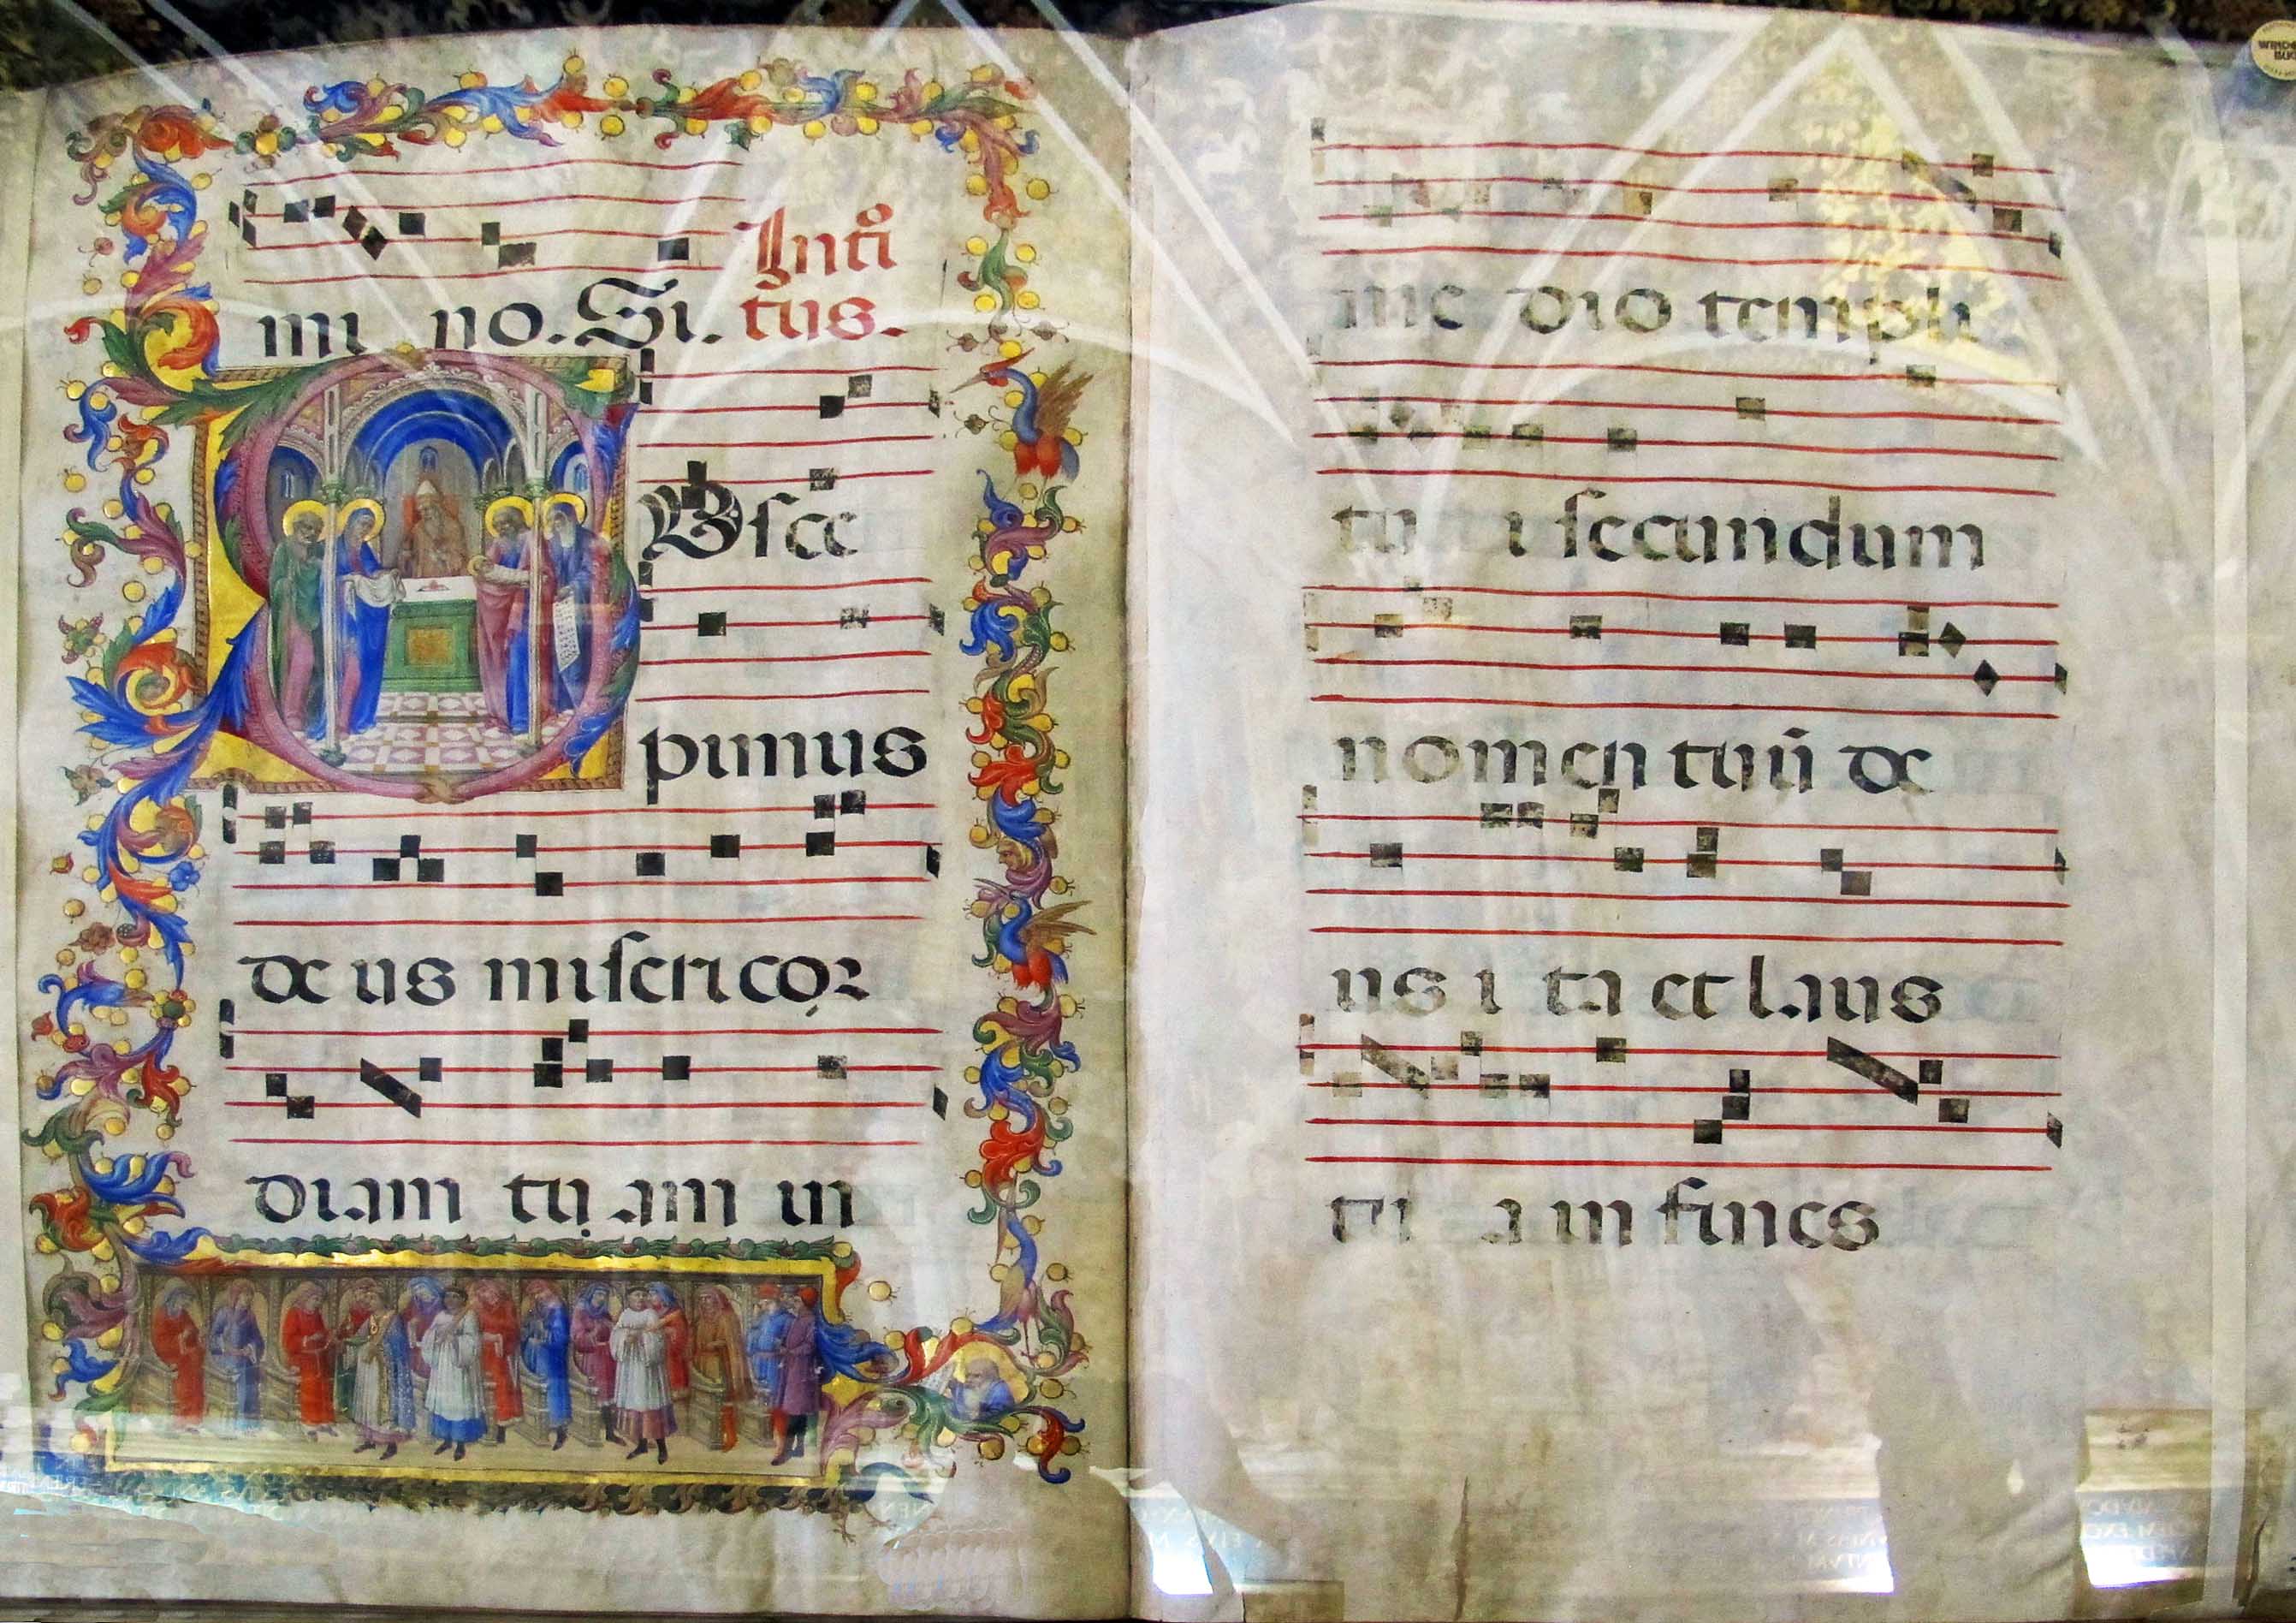 Intr̄
mi no. Si. tus.
Vsce
pimus
de us misericor
diam tu am in
me dio templi
tu i secundum
nomen tuū de
us i ta et laus
tu a in fines